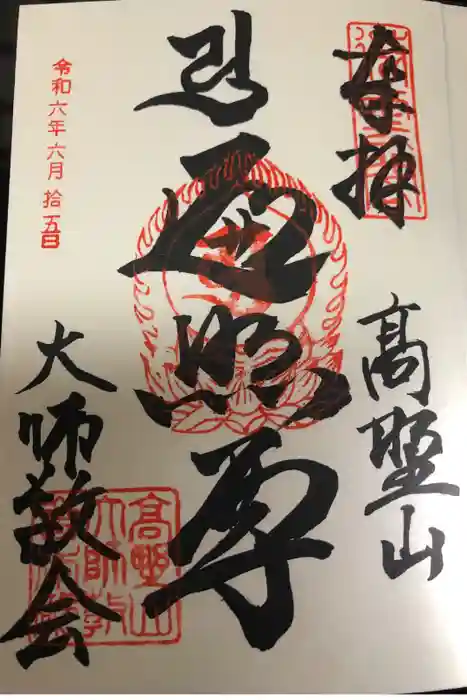 奉拝
高野山
遍照尊
大師教会
令和六年六月拾五日
高野山
大師教